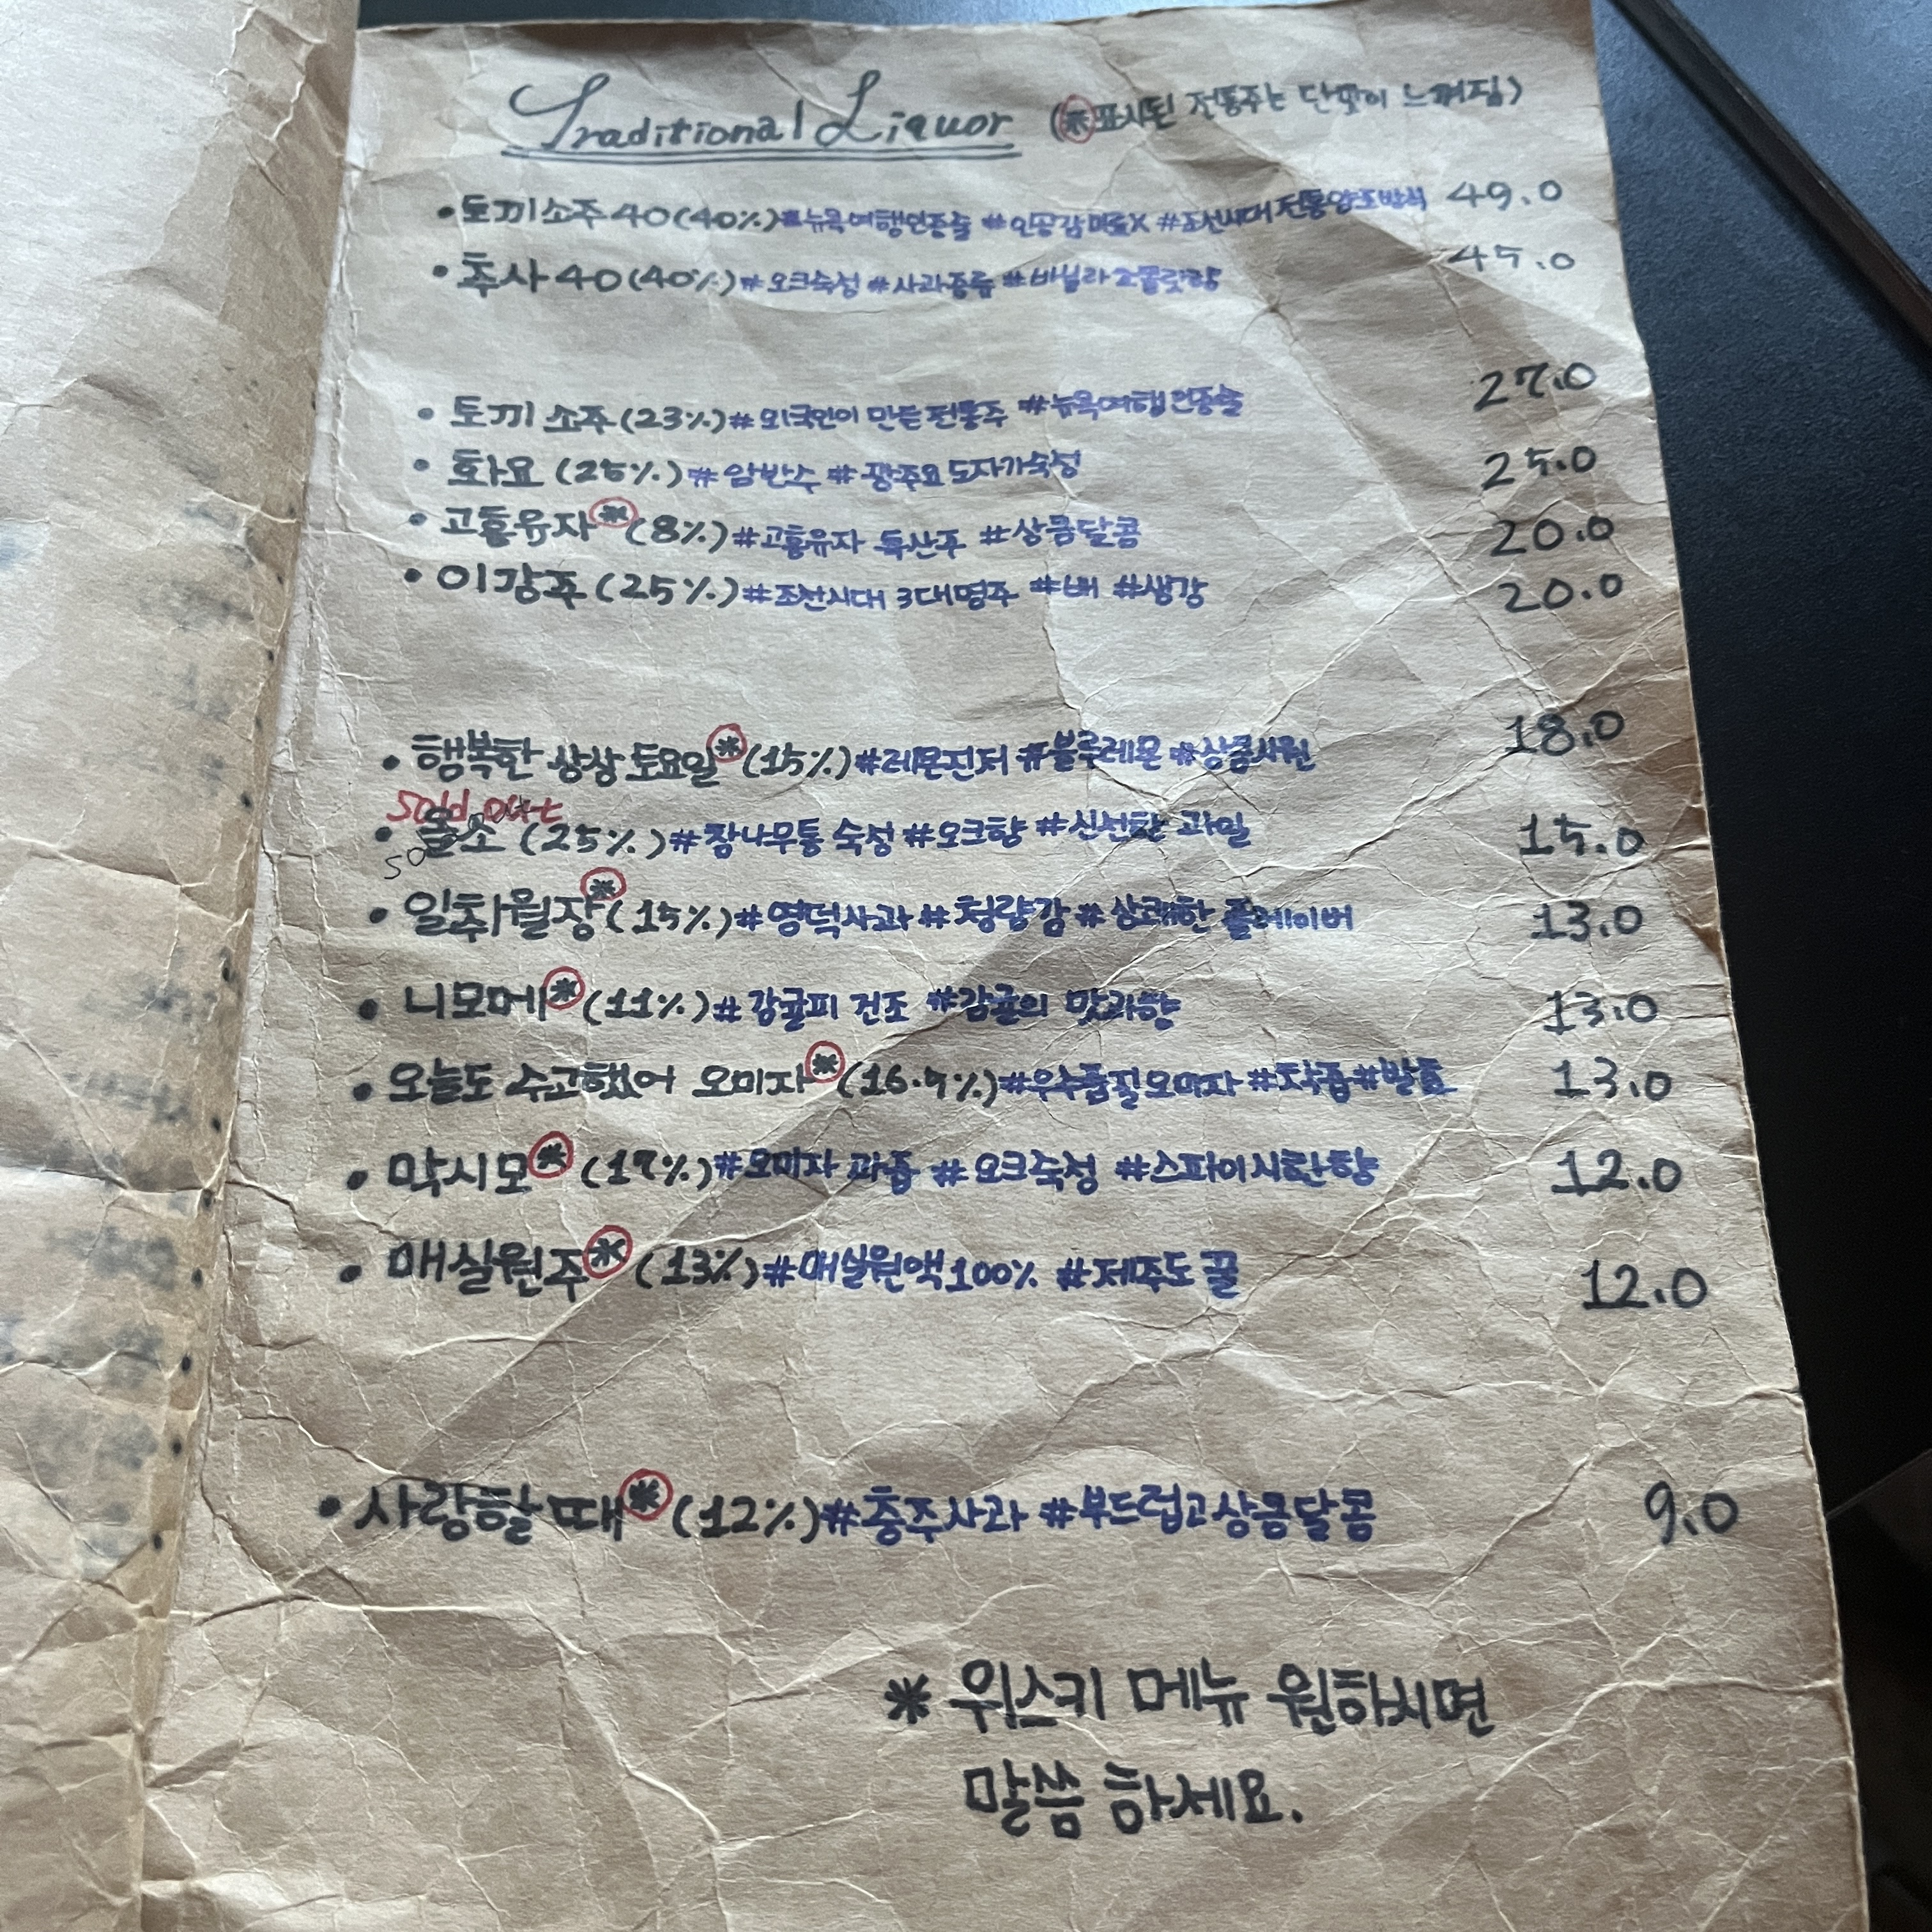 Traditional Liquor (※표시된 전통주는 단맛이 느껴짐)
• 토끼소주 40 (40%) #뉴욕여행인증술 #인공감미료X #조선시대 전통양조방식 49.0
• 추사 40 (40%) #오크숙성 #사과증류 #바닐라 초콜릿향 45.0
• 토끼 소주 (23%) #외국인이 만든 전통주 #뉴욕여행인증술 27.0
• 화요 (25%) #암반수 #광주요 도자기숙성 25.0
• 고흥유자※ (8%) #고흥유자 특산주 #상큼달콤 20.0
• 이강주 (25%) #조선시대 3대명주 #배 #생강 20.0
• 행복한 상상 토요일※ (15%) #레몬진저 #블루레몬 #상큼시원 18.0
Sold out
• 소 (25%) #참나무통 숙성 #오크향 #신선한 과일 15.0
• 일취월장※ (15%) #영덕사과 #청량감 #상쾌한 플레이버 13.0
• 니모메※ (11%) #감귤피 건조 #감귤의 맛과향 13.0
• 오늘도 수고했어 오미자※ (16.5%) #우수품질오미자 #착즙 #발효 13.0
• 막시모※ (17%) #오미자 과즙 #오크숙성 #스파이시한향 12.0
• 매실원주※ (13%) #매실원액100% #제주도 꿀 12.0
• 사랑할 때※ (12%) #충주사과 #부드럽고상큼달콤 9.0
※ 위스키 메뉴 원하시면
말씀 하세요.